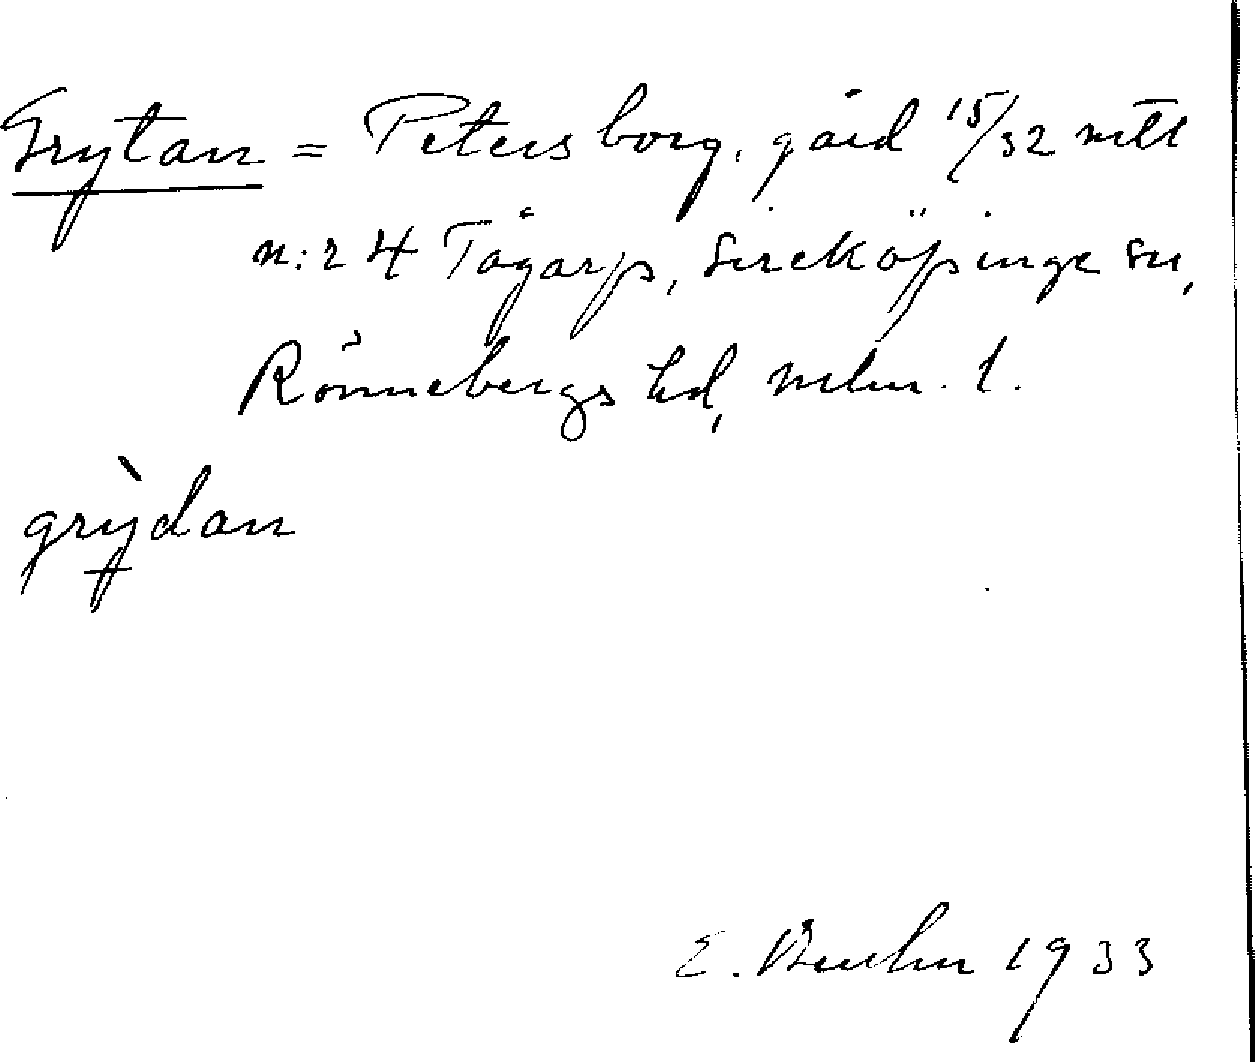 Grytan = Petersborg, gård 15/32 mtl
n:r 4 Tågarp, Sireköpinge sn,
Rönnebergs hd, mlm. l.
grỳdan
E. Bruhn 1933